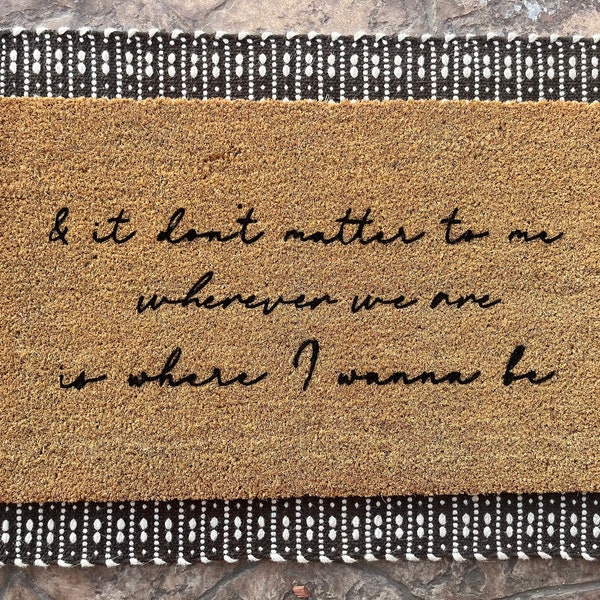 & it don't matter to me
wherever we are
is where I wanna be